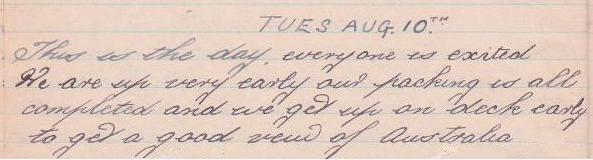 TUES AUG. 10.TH
This is the day, everyone is exited
We are up very early our packing is all
completed and we get up on deck early
to get a good veiw of Australia